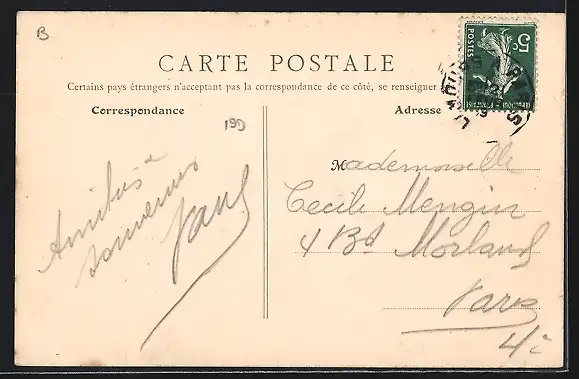 B
CARTE POSTALE
Certains pays étrangers n'acceptant pas la correspondance de ce côté, se renseigner
Correspondance
Adresse
199
5c
POSTES
Amitiés
souvenirs
Paul
Mademoiselle
Cecile Mengin
4 Bd Morland
Paris
4e